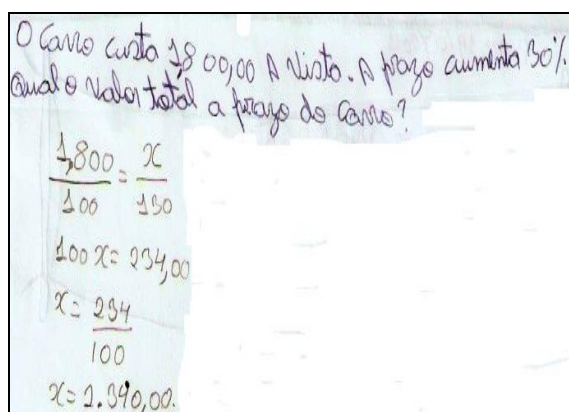 O Carro custa 1,800,00 A Vista. A prazo aumenta 30%.
Qual o valor total a prazo do carro?
1,800 = x
100 130
100 x = 234,00
x = 234
100
x = 2.340,00.